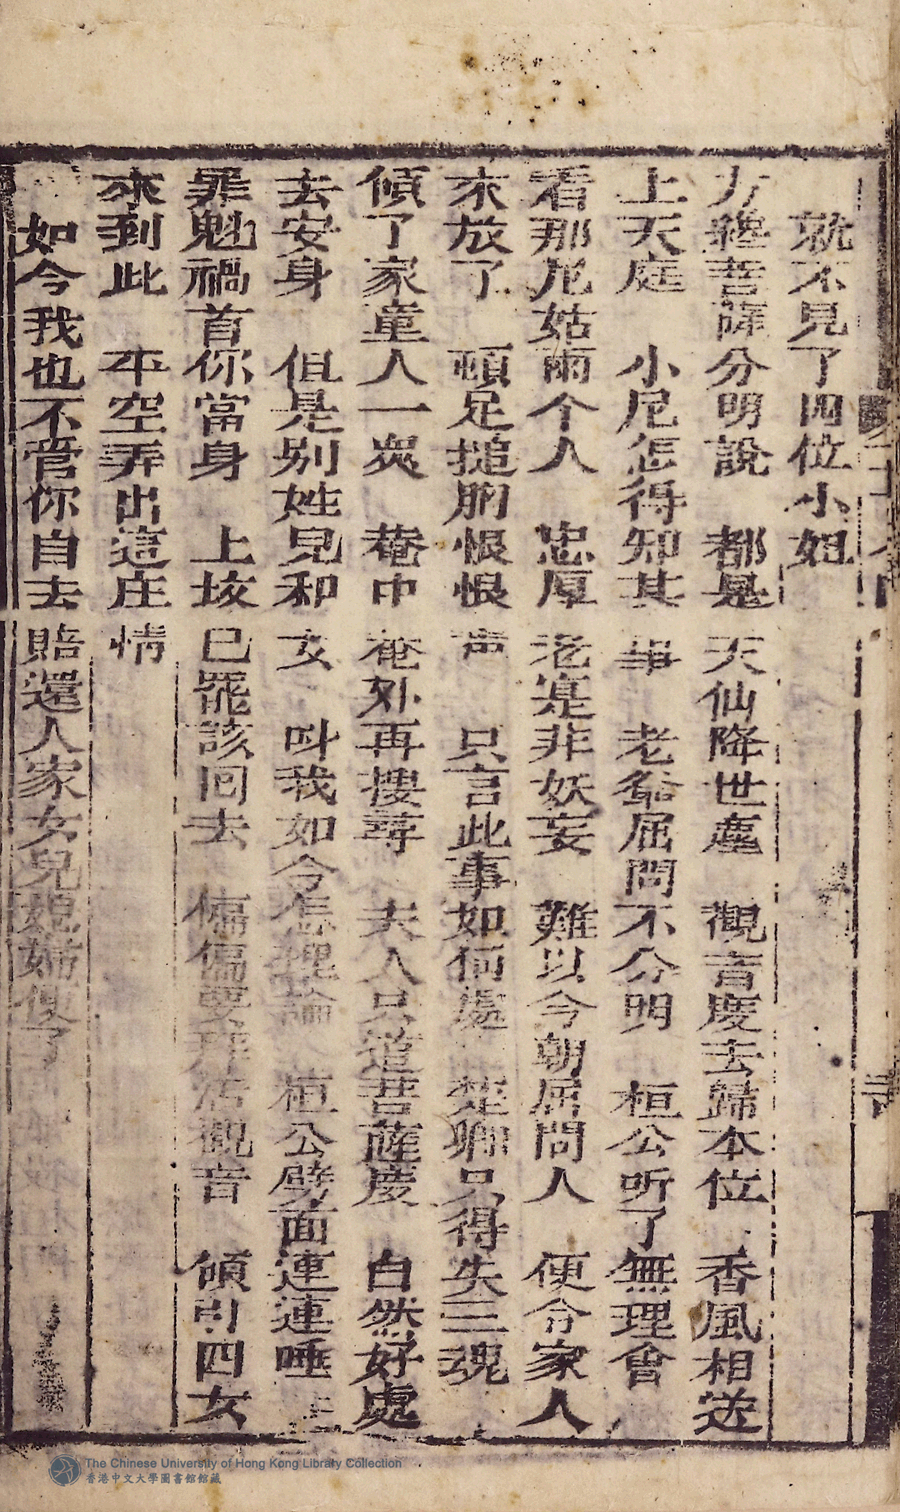 就不見了四位小姐
方纔菩薩分明說　都是天仙降世塵　觀音慶去歸本位　香風相送
上天庭　小尼怎得知其事　老爺屈問不分明　桓公听了無理會
看那尼姑兩个人　忠厚老寔非妖妄　難以今朝屈問人　便令家人
來放了　頓足搥胸恨恨声　只言此事如何處　楚卿只得失三魂
傾了家童人一衆　菴中菴外再搜尋　夫人只道菩薩慶　自然好處
去安身　但是别姓兒和女　呌我如今怎理論　桓公劈面連連唾
罪魁禍首你當身　上坟已罷該回去　偏偏要拜活觀音　傾引四女
來到此　平空弄出這庄情
如今我也不管你自去賠還人家女兒媳婦便了
The Chinese University of Hong Kong Library Collection
香港中文大學圖書館館藏